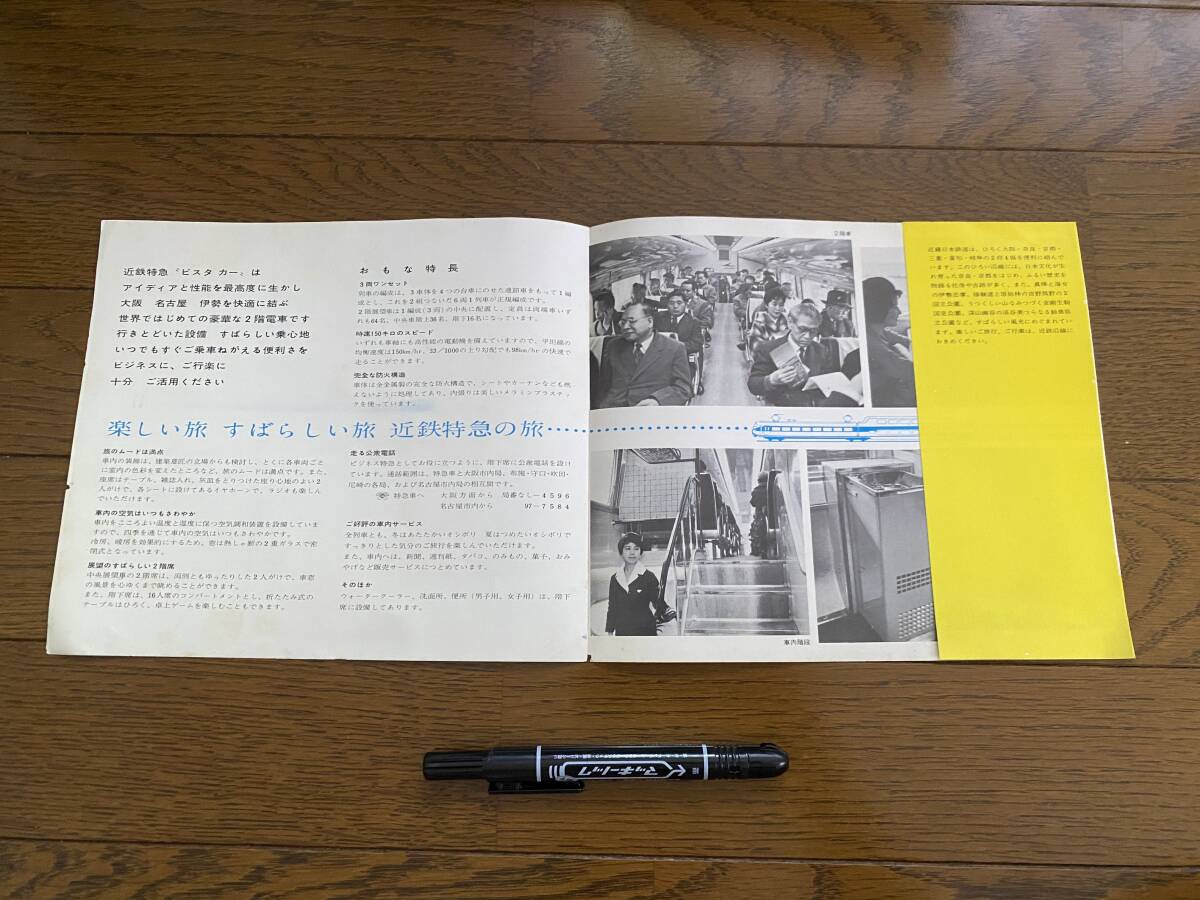 近鉄特急 “ビスタ カー” は
アイディアと性能を最高度に生かし
大阪 名古屋 伊勢を快適に結ぶ
世界ではじめての豪華な2階電車です
行きとどいた設備 すばらしい乗心地
いつでもすぐご乗車ねがえる便利さを
ビジネスに、ご行楽に
十分 ご活用ください
おもな特長
3両ワンセット
列車の編成は、3車体を4つの台車にのせた連節車をもって1編
成とし、これを2組つないだ6両1列車が正規編成です。
2階展望車は1編成(3両)の中央に配置し、定員は両端車いず
れも64名、中央車階上36名、階下16名になっています。
時速150キロのスピード
いずれも車軸にも高性能の電動機を備えていますので、平坦線の
均衡速度は150km/hr、33/1000の上り勾配でも98km/hrの快速で
走ることができます。
完全な防火構造
車体は全金属製の完全な防火構造で、シートやカーテンなども燃
えないように処理してあり、内張りは美しいメラミンプラスティッ
クを使っています。
楽しい旅 すばらしい旅 近鉄特急の旅
旅のムードは満点
車内の装飾は、建築意匠の立場からも検討し、とくに各車両ごと
に室内の色彩を変えたところなど、旅のムードは満点です。また、
座席はテーブル、雑誌入れ、灰皿をとりつけた座り心地のよい2
人がけで、各シートに設けてあるイヤホーンで、ラジオも楽しん
でいただけます。
車内の空気はいつもさわやか
車内をここちよい温度と湿度に保つ空気調和装置を設備していま
すので、四季を通じて車内の空気はいつもさわやかです。
冷房、暖房を効果的にするため、窓は熱しゃ断の2重ガラスで密
閉式となっています。
展望のすばらしい2階席
中央展望車の2階席は、両側ともゆったりした2人がけで、車窓
の風景を心ゆくまで眺めることができます。
また、階下席は、16人席のコンパートメントとし、折たたみ式の
テーブルはひろく、卓上ゲームを楽しむこともできます。
走る公衆電話
ビジネス特急としてお役に立つように、階下席に公衆電話を設け
ています。通話範囲は、特急車と大阪市内局、布施・守口・吹田・
尼崎の各局、および名古屋市内局の相互間です。
特急車へ 大阪方面から 局番なし-4596
名古屋市内から 97-7584
ご好評の車内サービス
全列車とも、冬はあたたかいオシボリ 夏はつめたいオシボリで
すっきりとした気分のご旅行を楽しんでいただけます。
また、車内へは、新聞、週刊紙、タバコ、のみもの、菓子、おみ
やげなど販売サービスにつとめています。
そのほか
ウォータークーラー、洗面所、便所(男子用、女子用)は、階下
席に設備してあります。
2階車
車内階段
近畿日本鉄道は、ひろく大阪・奈良・京都・
三重・愛知・岐阜の2府4県を便利に結んで
います。このひろい沿線には、日本文化が生
れ育った奈良・京都をはじめ、ふるい歴史を
マッキーノック